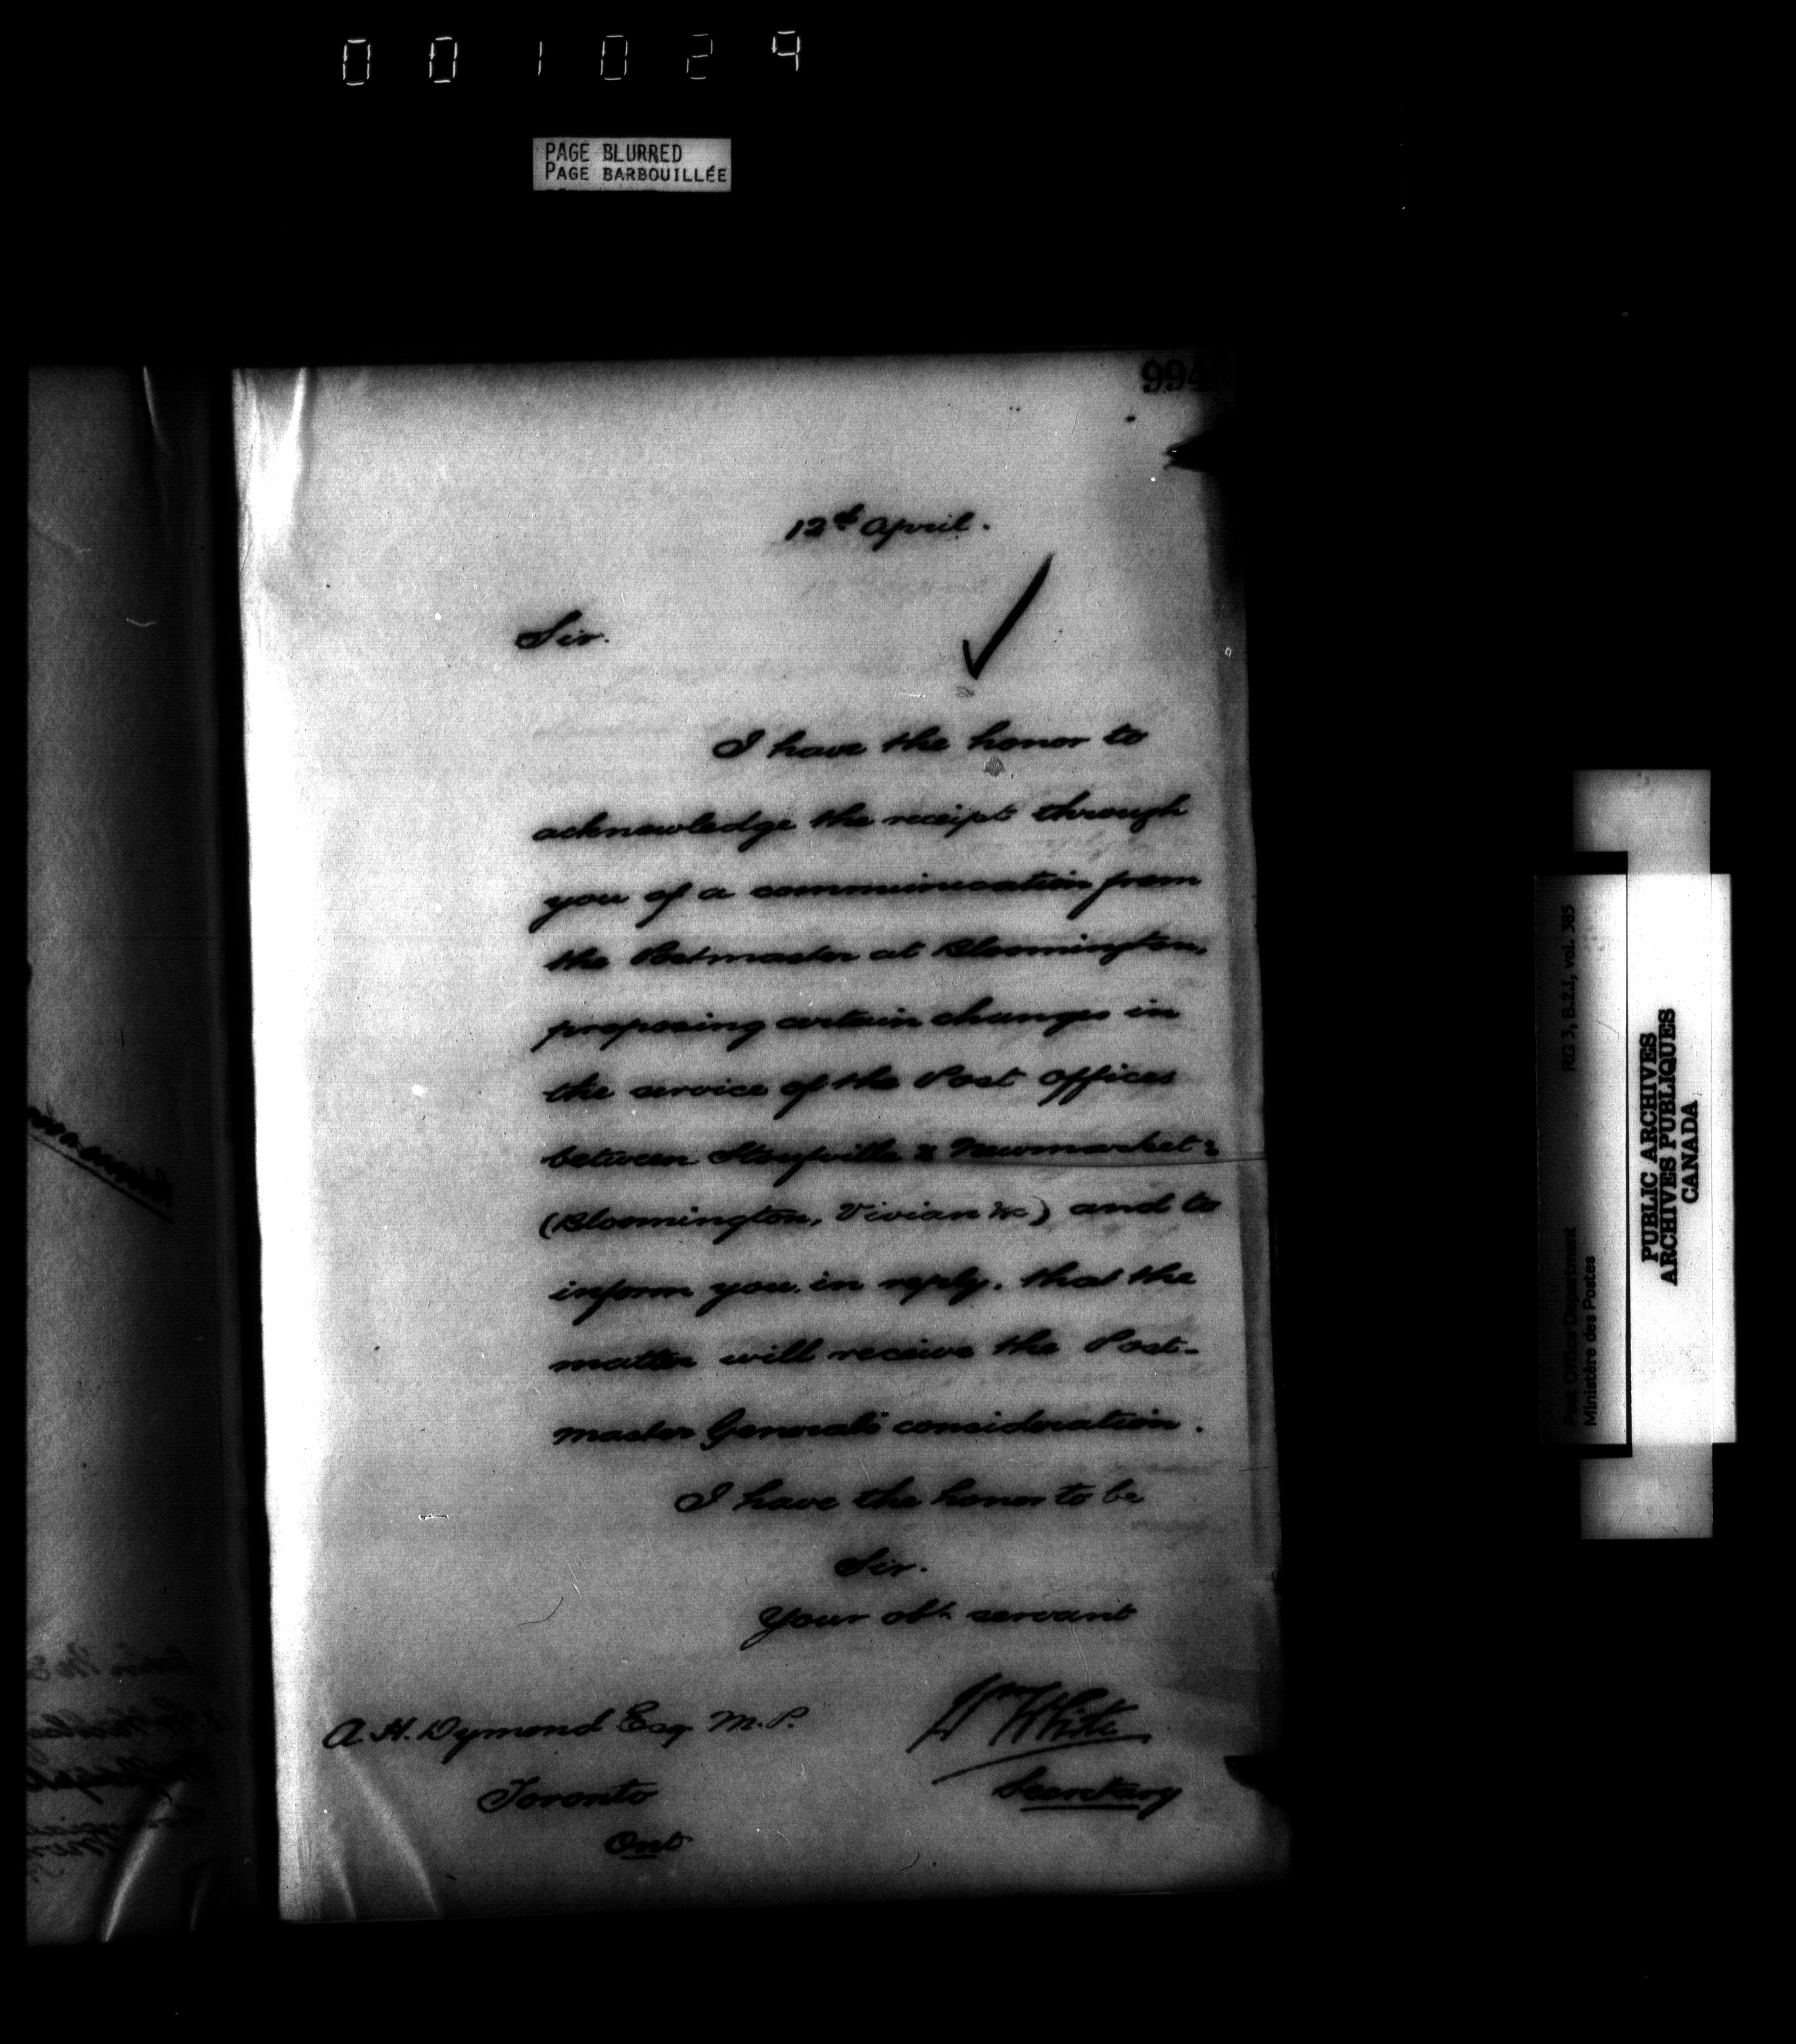 001029
PAGE BLURRED
PAGE BARBOUILLÉE
994
12th April.
Sir.
I have the honor to
acknowledge the receipt through
you of a communication from
the Postmaster at Bloomington,
proposing certain changes in
the service of the Post Offices
between Stouffville & Newmarket
(Bloomington, Vivian &c) and to
inform you in reply, that the
matter will receive the Post-
master General's consideration.
I have the honor to be
Sir.
Your obt. servant
Wm White
Secretary
A. H. Dymond Esq. M.P.
Toronto
Ont
Post Office Department RG 3, B.2.I, vol. 385
Ministère des Postes
PUBLIC ARCHIVES
ARCHIVES PUBLIQUES
CANADA